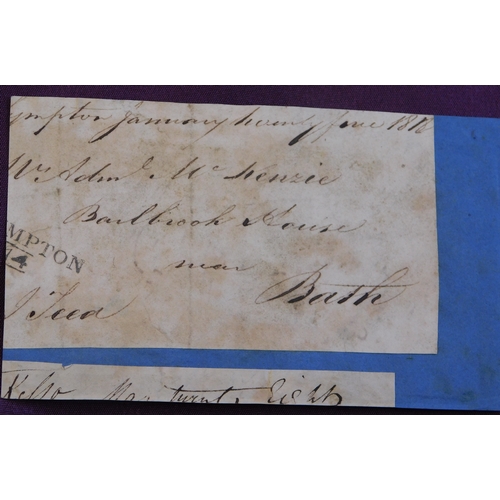 mpton January twenty five 181
Mrs Adml McKenzie
Bailbrook House
near
Bath
MPTON
74
Kelso May twenty Eight